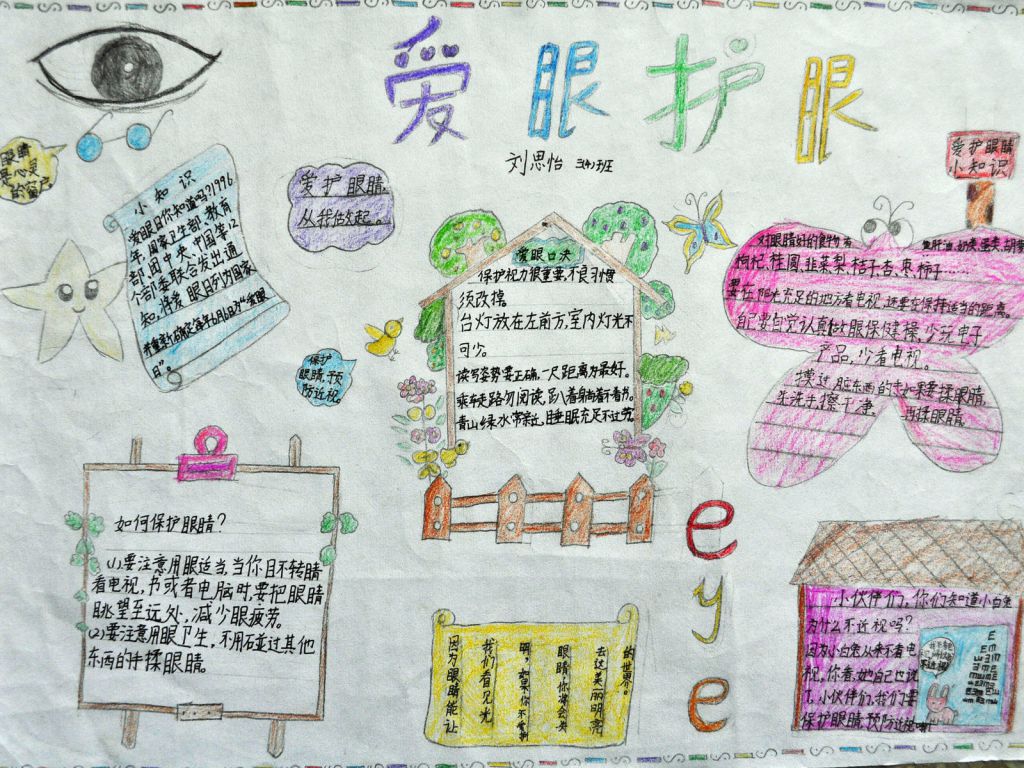 爱眼护眼
刘思怡 三(4)班
眼睛
是心灵
的窗户
小知识
爱眼日你知道吗?1996
年,国家卫生部,教育
部,团中央,中国等12
个部委联合发出通
知,将爱眼日列为国家,
并重新确定每年6月6日为"爱眼
日"。
爱护眼睛,
从我做起。
保护
眼睛,预
防近视。
爱眼口决
保护视力很重要,不良习惯
须改掉。
台灯放在左前方,室内灯光不
可少。
读写姿势要正确,一尺距离为最好。
乘车走路勿阅读,趴着躺着不看书。
青山绿水常亲近,睡眠充足不过劳。
爱护眼睛
小知识
对眼睛好的食物有
鱼肝油,奶类,蛋类,胡萝
枸杞,桂圆,韭菜梨,桔子杏,枣柿子……
要在阳光充足的地方看电视,还要在保持适当的距离。
自己要自觉认真做眼保健操,少玩电子
产品,少看电视。
摸过脏东西的手如果要揉眼睛,
先洗手,擦干净,再揉眼睛。
如何保护眼睛?
(1)要注意用眼适当,当你目不转睛
看电视,书或者电脑时,要把眼睛
眺望至远处,减少眼疲劳。
(2)要注意用眼卫生,不用碰过其他
东西的手揉眼睛。
因为眼睛能让
我们看见光
明,如果你不爱护
眼睛,你将会失
去这美丽明亮
的世界。
eye
小伙伴们,你们知道小白兔
为什么不近视吗?
因为小白兔从来不看电
视,你看,她自己也说
了,小伙伴们,我们要
保护眼睛,预防近视啊!